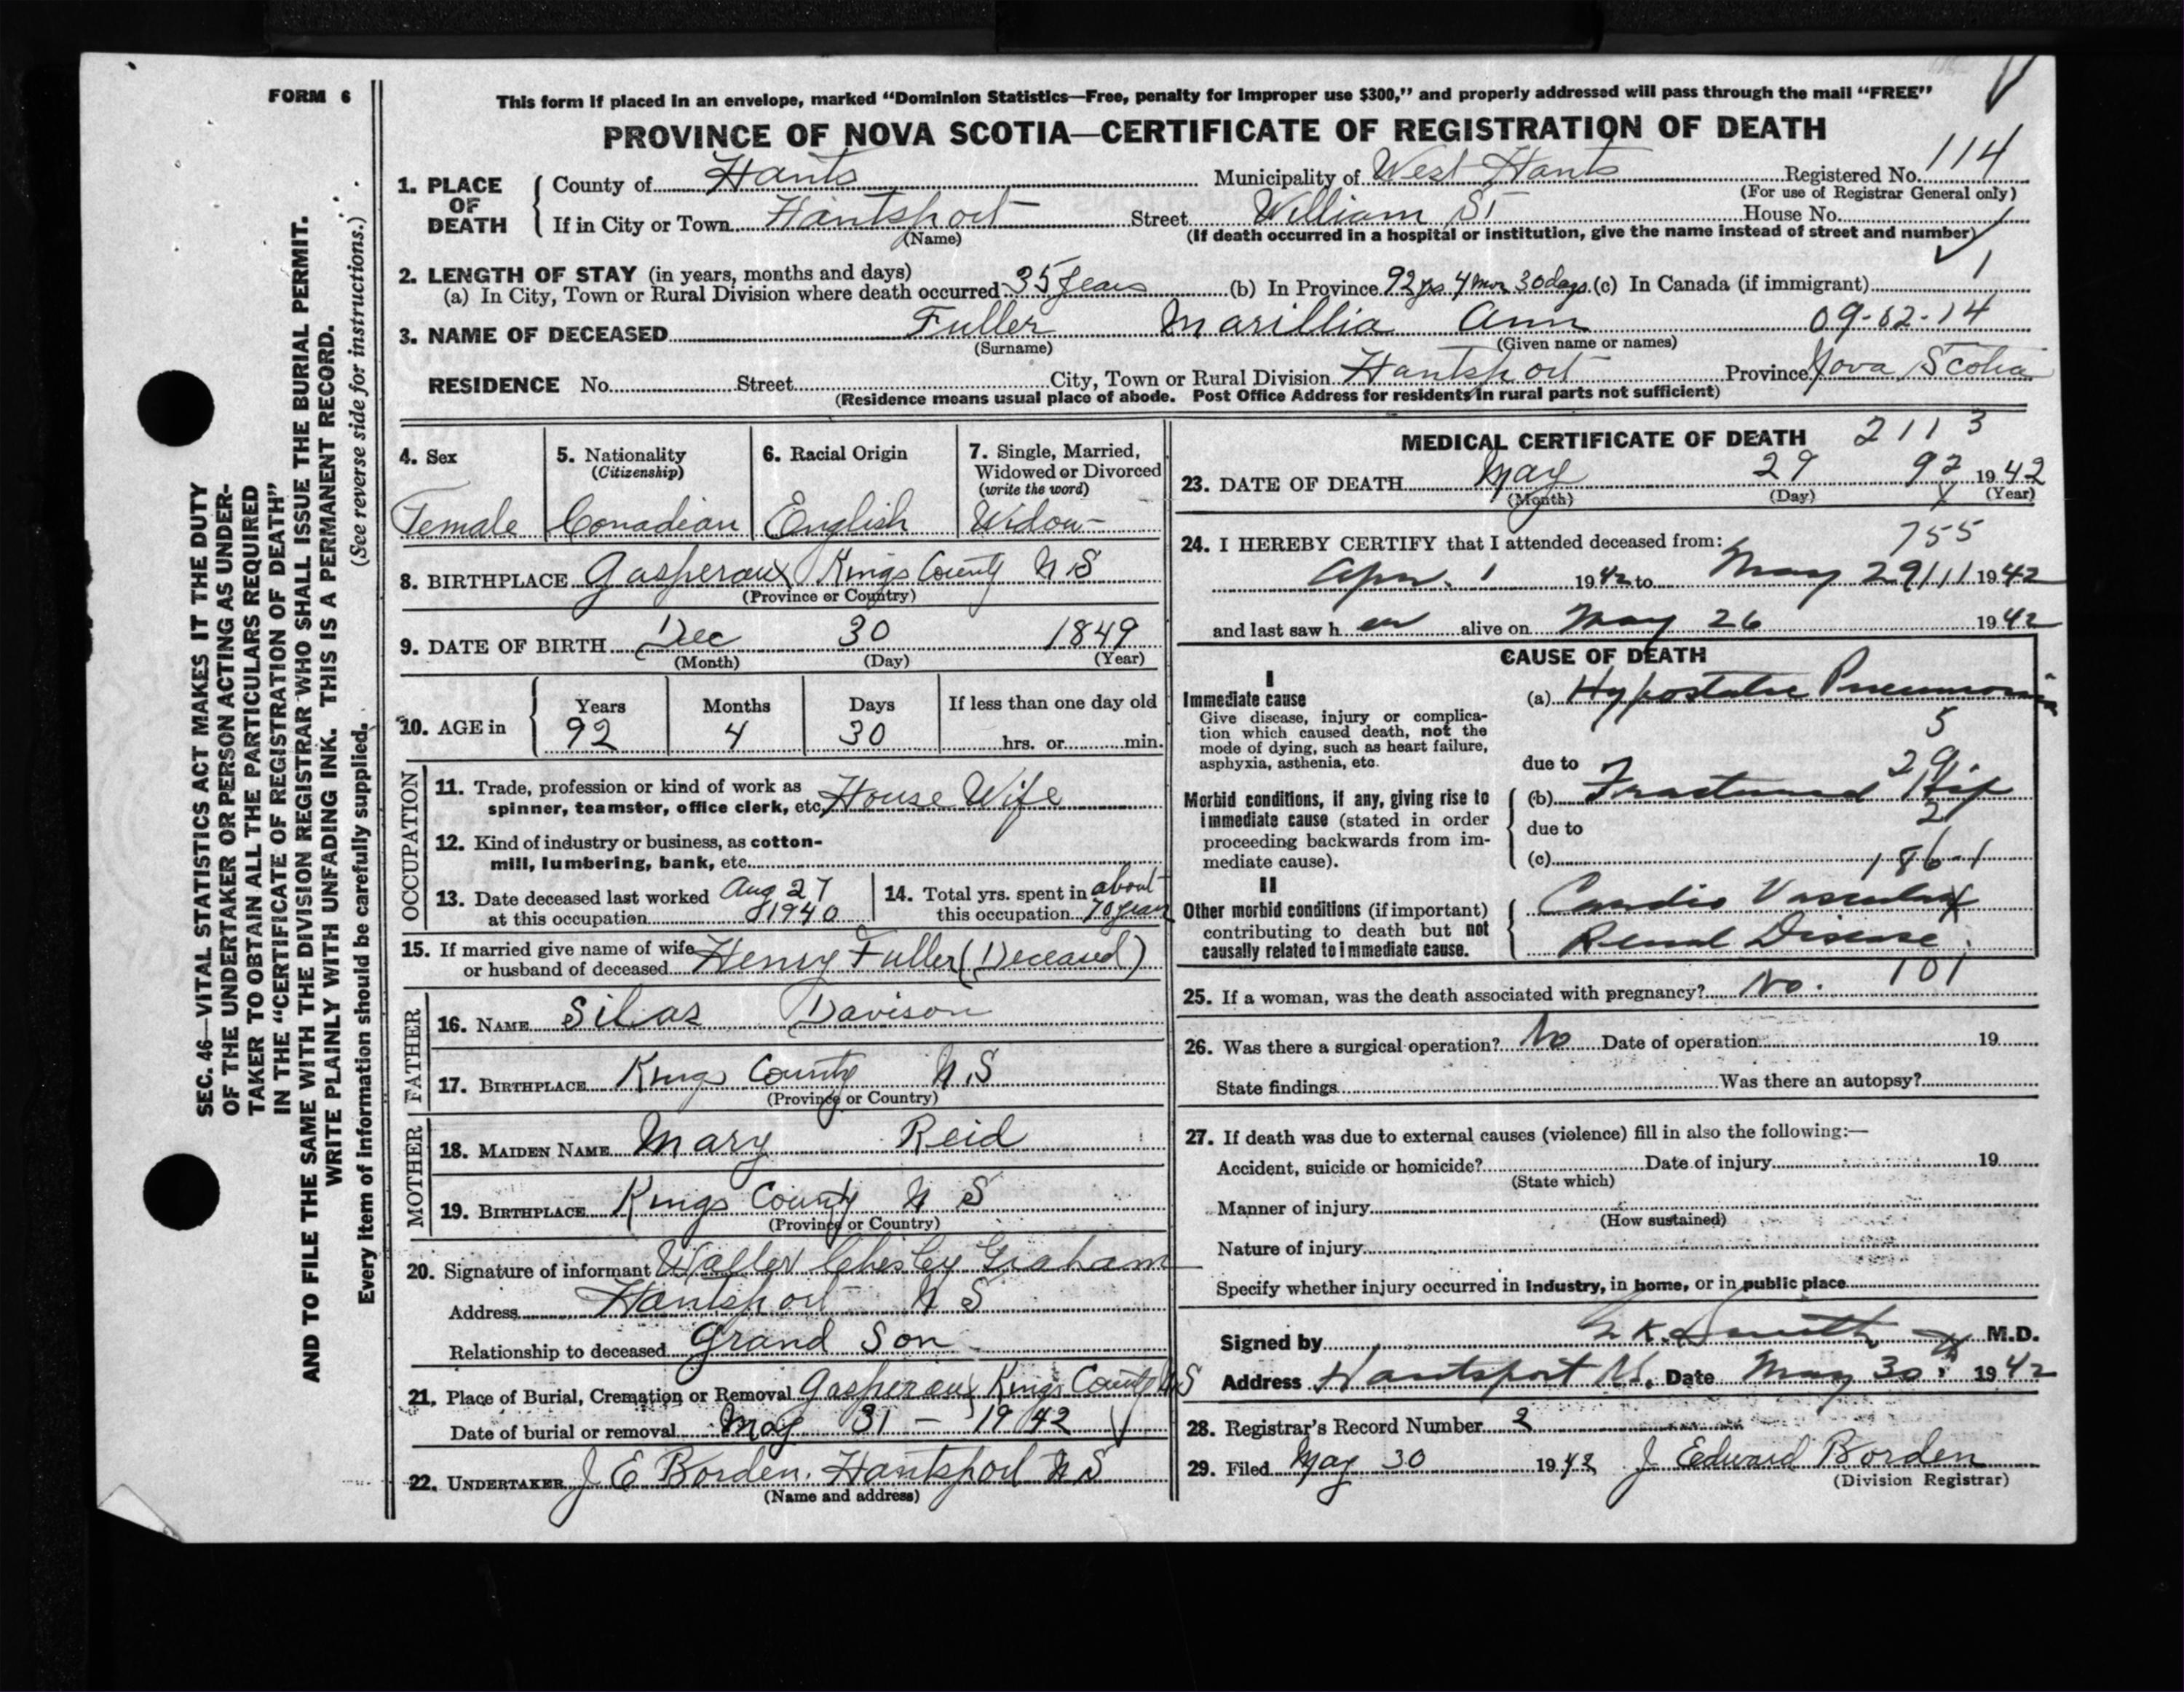 FORM 6
This form if placed in an envelope, marked “Dominion Statistics—Free, penalty for improper use $300,” and properly addressed will pass through the mail “FREE”
PROVINCE OF NOVA SCOTIA—CERTIFICATE OF REGISTRATION OF DEATH
SEC. 46—VITAL STATISTICS ACT MAKES IT THE DUTY
OF THE UNDERTAKER OR PERSON ACTING AS UNDER-
TAKER TO OBTAIN ALL THE PARTICULARS REQUIRED
IN THE “CERTIFICATE OF REGISTRATION OF DEATH”
AND TO FILE THE SAME WITH THE DIVISION REGISTRAR WHO SHALL ISSUE THE BURIAL PERMIT.
WRITE PLAINLY WITH UNFADING INK. THIS IS A PERMANENT RECORD.
Every item of information should be carefully supplied. (See reverse side for instructions.)
1. PLACE OF DEATH
County of Hants Municipality of West Hants Registered No. 114
(For use of Registrar General only)
If in City or Town Hantsport Street William St House No.
(Name) (If death occurred in a hospital or institution, give the name instead of street and number)
1
2. LENGTH OF STAY (in years, months and days)
(a) In City, Town or Rural Division where death occurred 35 years (b) In Province 92 yrs 4 mos 30 days (c) In Canada (if immigrant)
3. NAME OF DECEASED Fuller Marillia Ann 09-02-14
(Surname) (Given name or names)
RESIDENCE No. Street City, Town or Rural Division Hantsport Province Nova Scotia
(Residence means usual place of abode. Post Office Address for residents in rural parts not sufficient)
4. Sex
Female
5. Nationality
(Citizenship)
Canadian
6. Racial Origin
English
7. Single, Married,
Widowed or Divorced
(write the word)
Widow
8. BIRTHPLACE Gasperaux Kings County N S
(Province or Country)
9. DATE OF BIRTH Dec 30 1849
(Month) (Day) (Year)
10. AGE in
Years Months Days If less than one day old
92 4 30 hrs. or min.
OCCUPATION
11. Trade, profession or kind of work as
spinner, teamster, office clerk, etc. House Wife
12. Kind of industry or business, as cotton-
mill, lumbering, bank, etc.
13. Date deceased last worked Aug 27
at this occupation 1940
14. Total yrs. spent in about
this occupation 70 years
15. If married give name of wife
or husband of deceased Henry Fuller (Deceased)
FATHER
16. NAME Silas Davison
17. BIRTHPLACE Kings County N.S
(Province or Country)
MOTHER
18. MAIDEN NAME Mary Reid
19. BIRTHPLACE Kings County N S
(Province or Country)
20. Signature of informant Walter Chesley Graham
Address Hantsport N S
Relationship to deceased Grand Son
21. Place of Burial, Cremation or Removal Gasperaux Kings County N S
Date of burial or removal May 31 - 1942
22. UNDERTAKER J E Borden. Hantsport N S
(Name and address)
MEDICAL CERTIFICATE OF DEATH 2113
23. DATE OF DEATH May 29 92 1942
(Month) (Day) (Year)
24. I HEREBY CERTIFY that I attended deceased from: 755
Apr. 1 1942 to May 29 1942
and last saw h er alive on May 26 1942
CAUSE OF DEATH
I
Immediate cause
Give disease, injury or complica-
tion which caused death, not the
mode of dying, such as heart failure,
asphyxia, asthenia, etc.
(a) Hypostatic Pneumonia
5
due to
29
Morbid conditions, if any, giving rise to
immediate cause (stated in order
proceeding backwards from im-
mediate cause).
(b) Fractured Hip
2
due to
(c) 186-1
II
Other morbid conditions (if important)
contributing to death but not
causally related to immediate cause.
Cardio Vascular
Renal Disease.
101
25. If a woman, was the death associated with pregnancy? No.
26. Was there a surgical operation? No Date of operation 19
State findings Was there an autopsy?
27. If death was due to external causes (violence) fill in also the following:—
Accident, suicide or homicide? Date of injury 19
(State which)
Manner of injury
(How sustained)
Nature of injury
Specify whether injury occurred in industry, in home, or in public place
Signed by K. Smith M.D.
Address Hantsport N.S. Date May 30 1942
28. Registrar's Record Number 2
29. Filed May 30 1942 J Edward Borden
(Division Registrar)